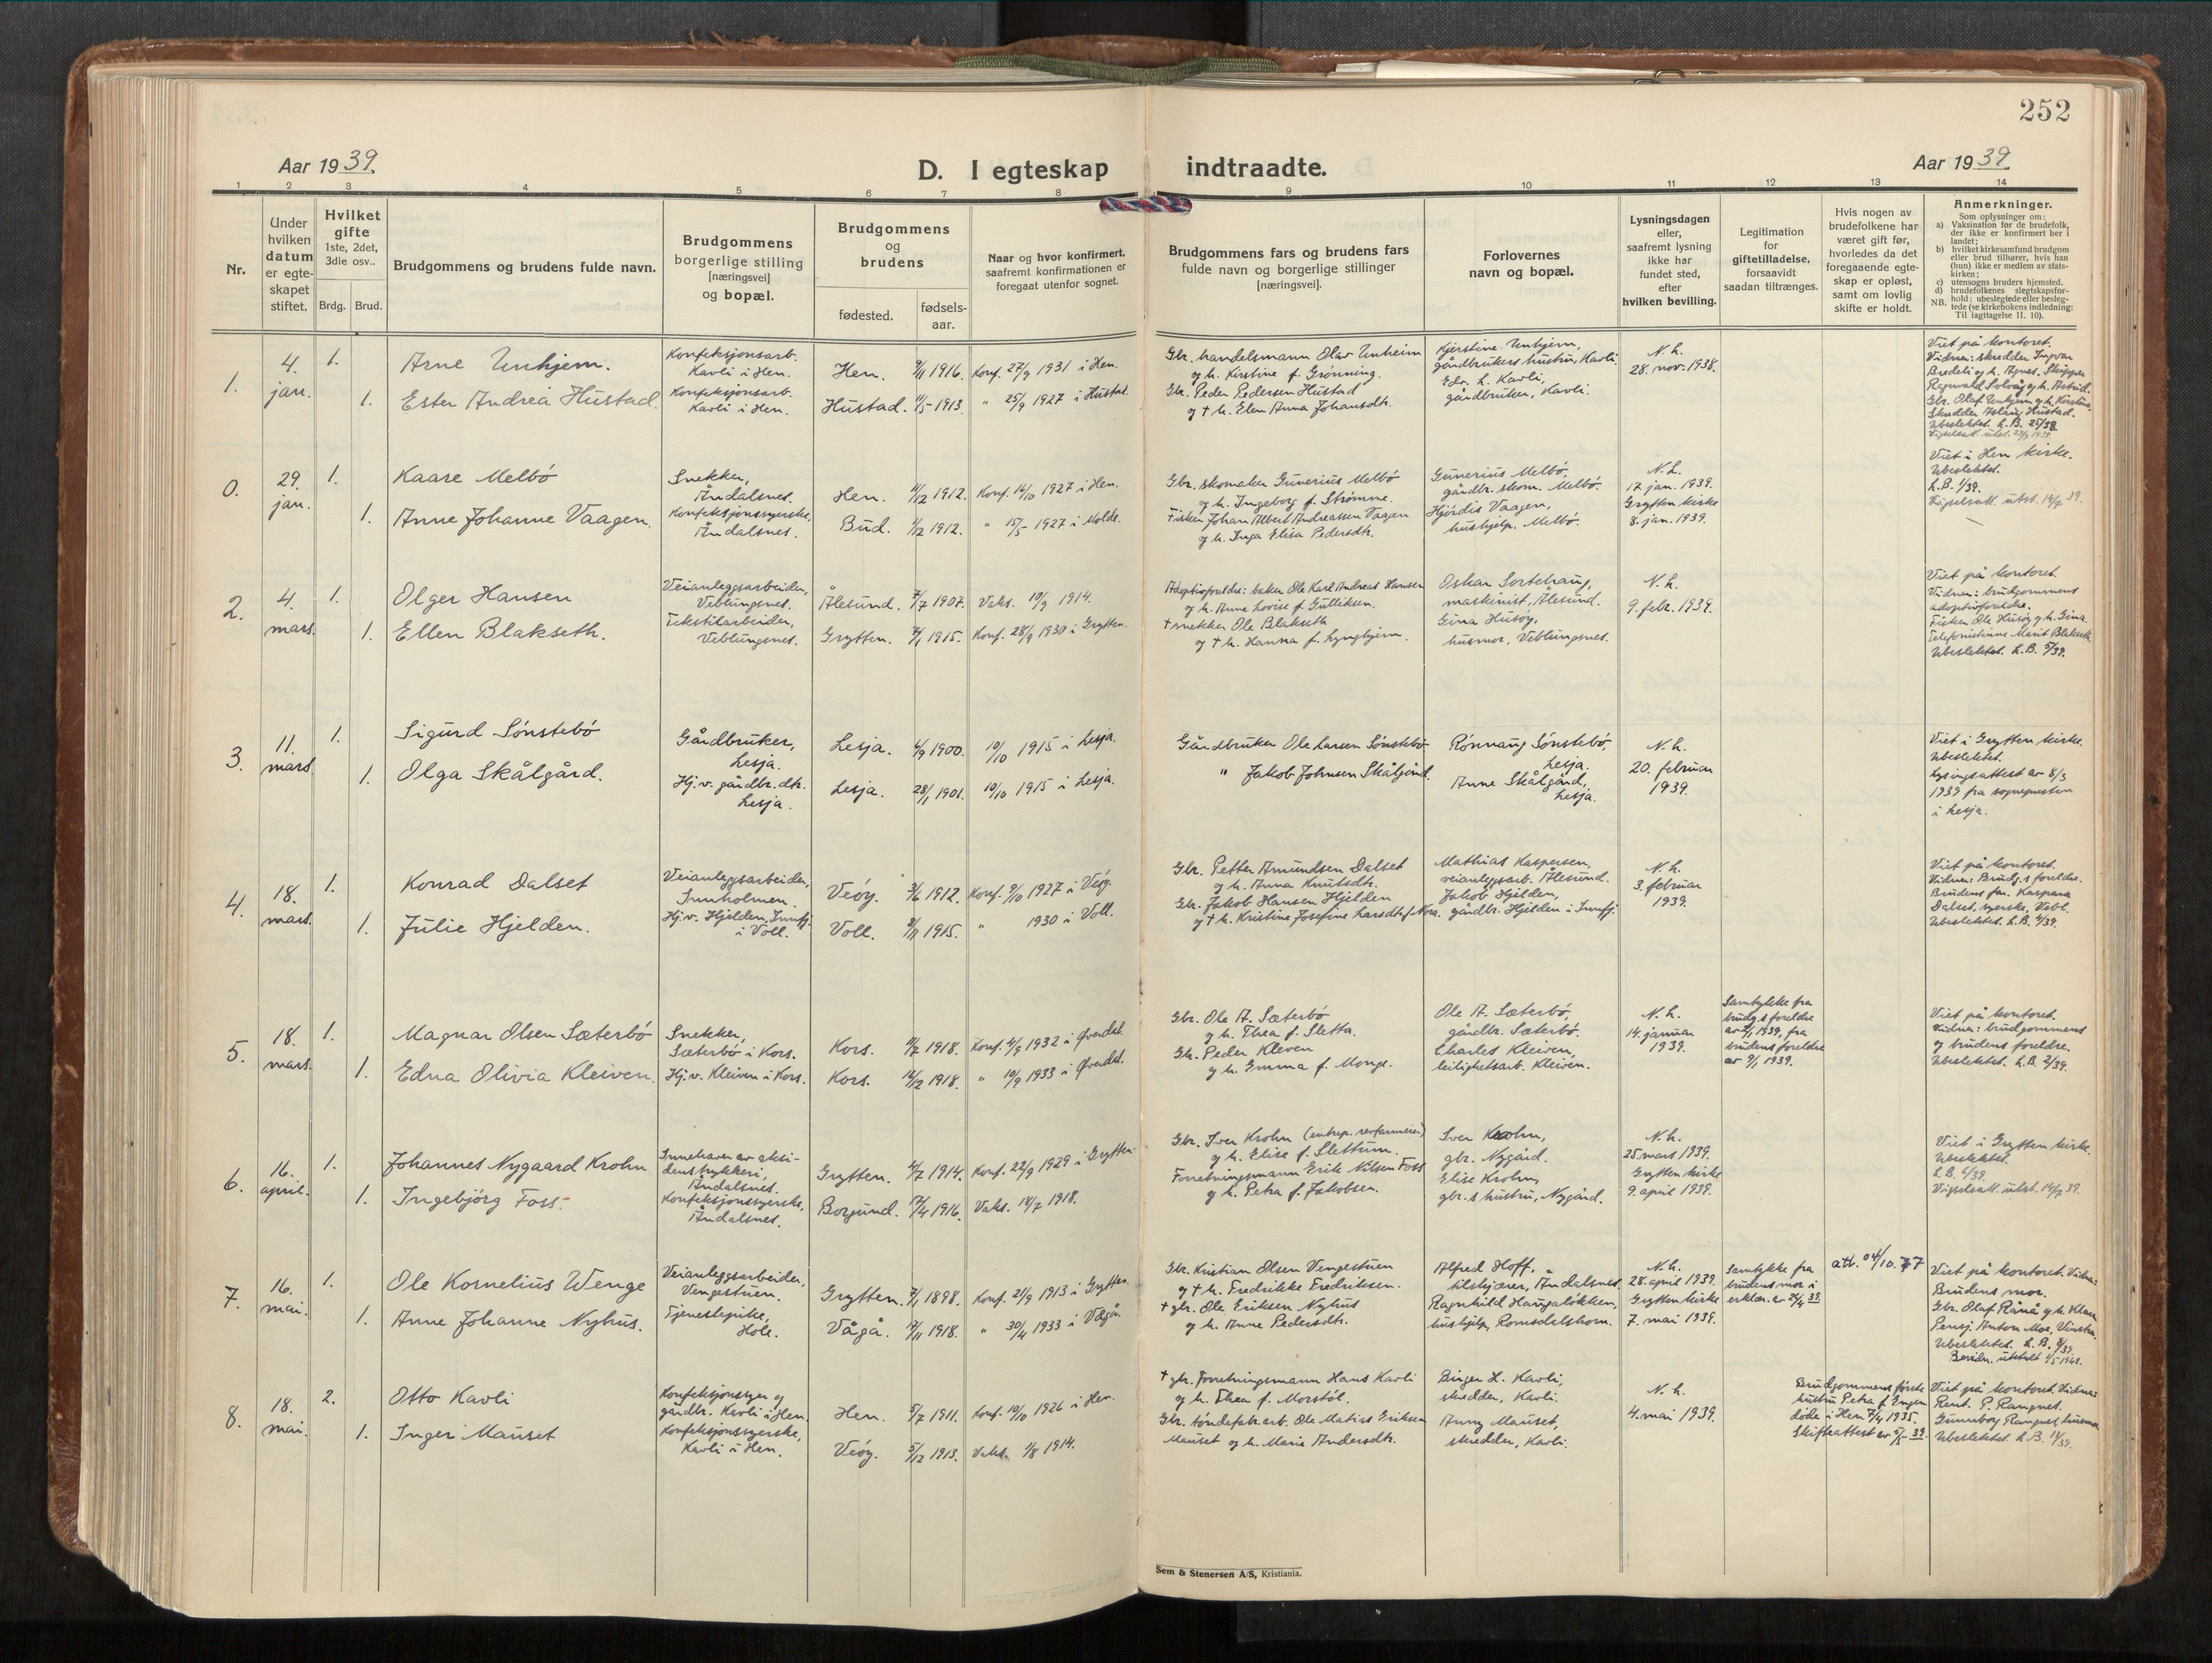 252
Aar 1939.
D. I egteskap indtraadte.
Aar 1939.
1 2 3 4 5 6 7 8 9 10 11 12 13 14
Nr.
Under
hvilken
datum
er egte-
skapet
stiftet.
Hvilket
gifte
1ste, 2det,
3die osv..
Brdg. Brud.
Brudgommens og brudens fulde navn.
Brudgommens
borgerlige stilling
[næringsvei]
og bopæl.
Brudgommens
og
brudens
fødested.
fødsels-
aar.
Naar og hvor konfirmert,
saafremt konfirmationen er
foregaat utenfor sognet.
Brudgommens fars og brudens fars
fulde navn og borgerlige stillinger
[næringsvei].
Forlovernes
navn og bopæl.
Lysningsdagen
eller,
saafremt lysning
ikke har
fundet sted,
efter
hvilken bevilling.
Legitimation
for
giftetilladelse,
forsaavidt
saadan tiltrænges.
Hvis nogen av
brudefolkene har
været gift før,
hvorledes da det
foregaaende egte-
skap er opløst,
samt om lovlig
skifte er holdt.
Anmerkninger.
Som oplysning om:
a) Vaksination for de brudefolk,
der ikke er konfirmert her i
landet;
b) hvilket kirkesamfund brudgom
eller brud tilhører, hvis han
(hun) ikke er medlem av stats-
kirken;
c) utensogns bruders hjemsted.
d) brudefolkenes slegtskapsfor-
hold: ubeslegtede eller besleg-
NB. tede (se kirkebokens indledning:
Til iagttagelse II. 10).
1.
4.
jan.
1.
Arne Unhjem.
Konfeksjonsarb.
Kavli i Hen.
Hen. 9/11 1916. Konf. 27/9 1931 i Hen.
1.
Ester Andrea Hustad.
Konfeksjonsarb.
Kavli i Hen.
Hustad. 11/5 1913. " 25/9 1927 i Hustad.
Gbr. handelsmann Olav Unheim
og h. Kirstine f. Grønning.
Gbr. Peder Pedersen Hustad
og † h. Elen Anna Johansdtr.
Kjerstine Unhjem,
gårdbrukers hustru, Kavli.
Edv. L. Kavli,
gårdbruker, Kavli.
N. h.
28. nov. 1938.
Viet på kontoret.
Vidner: skredder Ingvar
Bredeli og h. Agnes. Skipper
Ragnvald Solvåg og h. Astrid.
Gbr. Olaf Unhjem og h. Kirstine.
Skredder Aslaug Hustad.
Ubeslektet. L.B. 25/38.
0.
29.
jan.
1.
Kaare Melbø
Snekker,
Åndalsnes.
Hen. 4/12 1912. Konf. 14/10 1927 i Hen.
1.
Anne Johanne Vaagen.
Konfeksjonssyerske,
Åndalsnes.
Bud. 1/12 1912. " 15/5 1927 i Molde.
Gbr. skomaker Gunerius Melbø
og h. Ingeborg f. Strømme.
Fisker Johan Albert Andreassen Vaagen
og h. Inga Elisa Pedersdtr.
Gunerius Melbø,
gårdbr. skom. Melbø.
Hjørdis Vaagen,
hushjelp, Melbø.
N. L.
17 jan. 1939.
Grytten kirke
8. jan. 1939.
Viet i Hen kirke.
Ubeslektet.
L.B. 1/39.
Vigselsatt. utst. 14/7 39.
2.
4.
mars.
1.
Olger Hansen
Veianleggsarbeider,
Veblungsnes.
Ålesund. 7/7 1907. Vaks. 10/9 1914.
1.
Ellen Blakseth.
Tekstilarbeider,
Veblungsnes.
Grytten. 7/1 1915. Konf. 28/9 1930 i Grytten.
Adoptivforeldre: baker Ole Karl Andreas Hansen
og h. Anne Lovise f. Gulliksen.
† snekker Ole Blakseth
og † h. Hanna f. Lyngheim.
Oskar Sortehaug,
maskinist, Ålesund.
Gina Husøy,
husmor, Veblungsnes.
N. h.
9. febr. 1939.
Viet på kontoret.
Vidner: brudgommens
adoptivforeldre.
Fisker Ole Husøy og h. Gina.
Telefonistinne Marit Blakseth.
Ubeslektet. L.B. 5/39.
3.
11.
mars.
1.
Sigurd Sønstebø
Gårdbruker,
Lesja.
Lesja. 4/9 1900. 10/10 1915 i Lesja.
1.
Olga Skålgård.
Hj. v. gårdbr. dtr.
Lesja.
Lesja. 28/1 1901. 10/10 1915 i Lesja.
Gårdbruker Ole Larsen Sønstebø
" Jakob Johnsen Skålgård.
Rønnaug Sønstebø,
Lesja.
Anne Skålgård,
Lesja.
N. h.
20. februar
1939.
Viet i Grytten kirke.
Ubeslektet.
Lysingsattest av 8/3
1939 fra sognepresten
i Lesja.
4.
18.
mars.
1.
Konrad Dalset
Veianleggsarbeider,
Innholmen.
Veøy. 3/6 1912. Konf. 9/10 1927 i Veøy.
1.
Julie Hjelden.
Hj. v. Hjelden, Innfj.
i Voll.
Voll. 8/11 1915. " 1930 i Voll.
Gbr. Petter Amundsen Dalset
og h. Anna Knutsdtr.
Gbr. Jakob Hansen Hjelden
og † h. Kristine Josefine Larsdtr. f. Nora.
Mathias Kaspersen,
veianleggsarb. Ålesund.
Jakob Hjelden,
gårdbr. Hjelden i Innfj.
N. h.
3. februar
1939.
Viet på kontoret.
Vidner: Brudg.s foreldre.
Brudens far. Kaspara
Dalset, syerske, Vebl.
Ubeslektet. L.B. 4/39.
5.
18.
mars.
1.
Magnar Olsen Sæterbø
Snekker,
Sæterbø i Kors.
Kors. 9/7 1918. Konf. 4/9 1932 i Øverdal.
1.
Edna Olivia Kleiven.
Hj. v. Kleiven i Kors.
Kors. 16/12 1918. " 10/9 1933 i Øverdal.
Gbr. Ole A. Sæterbø
og h. Thea f. Sletta.
Gbr. Peder Kleven
og h. Emma f. Monge.
Ole A. Sæterbø,
gårdbr. Sæterbø.
Charles Kleiven,
leilighetsarb. Kleiven.
N. h.
14. januar
1939.
Samtykke fra
brudg.s foreldre
av 9/1 1939, fra
brudens foreldre
av 9/1 1939.
Viet på kontoret.
Vidner: brudgommens
og brudens foreldre.
Ubeslektet. L.B. 2/39.
6.
16.
april.
1.
Johannes Nygaard Krohn
Innehaver av aksi-
denstrykkeri,
Åndalsnes.
Grytten. 4/7 1914. Konf. 22/9 1929 i Grytten.
1.
Ingebjørg Foss.
Konfeksjonssyerske,
Åndalsnes.
Borgund. 17/4 1916. Vaks. 18/7 1918.
Gbr. Iver Krohn
og h. Elise f. Slettum.
Forretningsmann Erik Nilsen Foss
og h. Petra f. Jakobsen.
Iver Krohn,
gbr. Nygård.
Elise Krohn,
gbr.s hustru, Nygård.
N. h.
25 mars 1939.
Grytten kirke
9. april 1939.
Viet i Grytten kirke.
Ubeslektet.
L.B. 6/39.
Vigselsatt. utst. 14/7 39.
7.
16.
mai.
1.
Ole Kornelius Wenge
Veianleggsarbeider,
Vengestuen.
Grytten. 7/1 1898. Konf. 21/9 1913 i Grytten.
1.
Anne Johanne Nyhus.
Tjenestepike,
Hole.
Vågå. 19/11 1918. " 30/4 1933 i Vågå.
Gbr. Kristian Olsen Vengestuen
og † h. Fredrikke Fredriksen.
† gbr. Ole Eriksen Nyhus
og h. Anne Pedersdtr.
Alfred Hoff,
bilskjører, Åndalsnes.
Ragnhild Haugaløkken,
hushjelp, Romsdalshorn.
N. h.
28. april 1939.
Grytten kirke
7. mai 1939.
Samtykke fra
brudens mor i
erklær. av 24/4 39.
att. 04/10.77
Viet på kontoret. Vidn:
Brudens mor.
Gbr. Olaf Rånå og h. Klara
Pensj. Anton Moe, Vinstra.
Ubeslektet. L.B. 8/39.
8.
18.
mai.
2.
Otto Kavli
Konfeksjonssyer og
gårdbr. Kavli i Hen.
Hen. 5/7 1911. Konf. 10/10 1926 i Hen.
1.
Inger Mauset
Konfeksjonssyerske,
Kavli i Hen.
Veøy. 5/12 1913. Vaks. 1/8 1914.
† gbr. Forretningsmann Hans Kavli
og h. Thea f. Morstøl.
Gbr. tøndefabr.arb. Ole Matias Eriksen
Mauset og h. Marie Andersdtr.
Birger H. Kavli,
skredder, Kavli.
Anny Mauset,
skredder, Kavli.
N. h.
4. mai 1939.
Brudgommens første
hustru Petra f. Engen
døde i Hen 7/4 1935.
Skifteattest av 5/5 39.
Viet på kontoret. Vidner:
Rent. P. Rangnes.
Gunnborg Rangnes, husmor
Ubeslektet. L.B. 11/39.
Sem & Stenersen A/S, Kristiania.